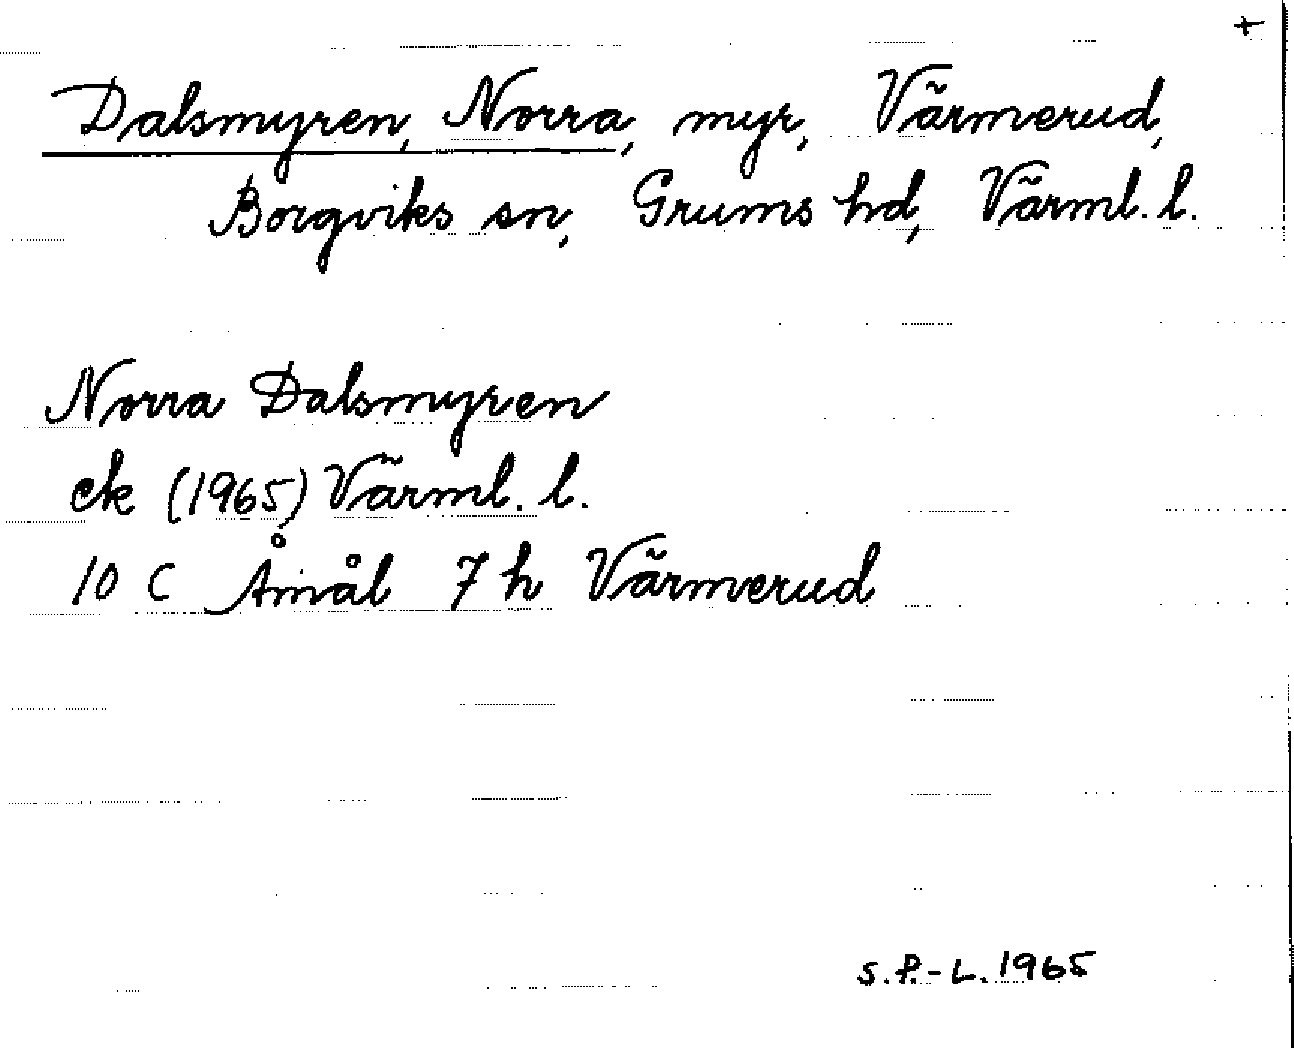 +
Dalsmyren, Norra, myr, Värmerud,
Borgviks sn, Grums hd, Värml. l.
Norra Dalsmyren
ek (1965) Värml. l.
10 C Åmål 7 h Värmerud
S.P.-L. 1965